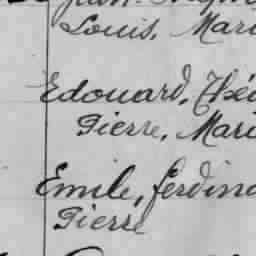 Louis, Mari
Edouard, Théo
Pierre, Mari
Emile, ferdina
Pierre